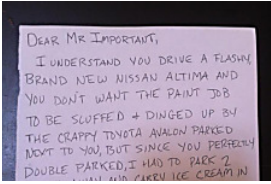 DEAR MR IMPORTANT,
I UNDERSTAND YOU DRIVE A FLASHY,
BRAND NEW NISSAN ALTIMA AND
YOU DON'T WANT THE PAINT JOB
TO BE SCUFFED & DINGED UP BY
THE CRAPPY TOYOTA AVALON PARKED
NEXT TO YOU, BUT SINCE YOU PERFECTLY
DOUBLE PARKED, I HAD TO PARK 2
AND CARRY ICE CREAM IN